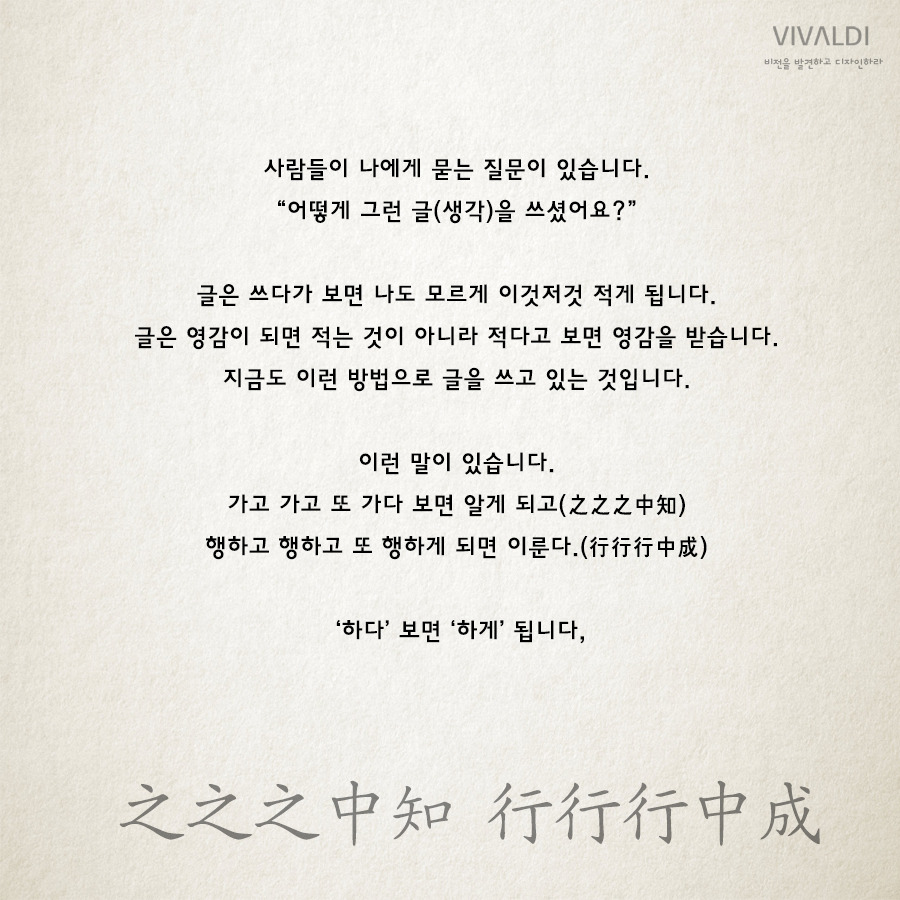 VIVALDI
비전을 발견하고 디자인하라
사람들이 나에게 묻는 질문이 있습니다.
“어떻게 그런 글(생각)을 쓰셨어요?”
글은 쓰다가 보면 나도 모르게 이것저것 적게 됩니다.
글은 영감이 되면 적는 것이 아니라 적다고 보면 영감을 받습니다.
지금도 이런 방법으로 글을 쓰고 있는 것입니다.
이런 말이 있습니다.
가고 가고 또 가다 보면 알게 되고(之之之中知)
행하고 행하고 또 행하게 되면 이룬다.(行行行中成)
‘하다’ 보면 ‘하게’ 됩니다,
之之之中知 行行行中成